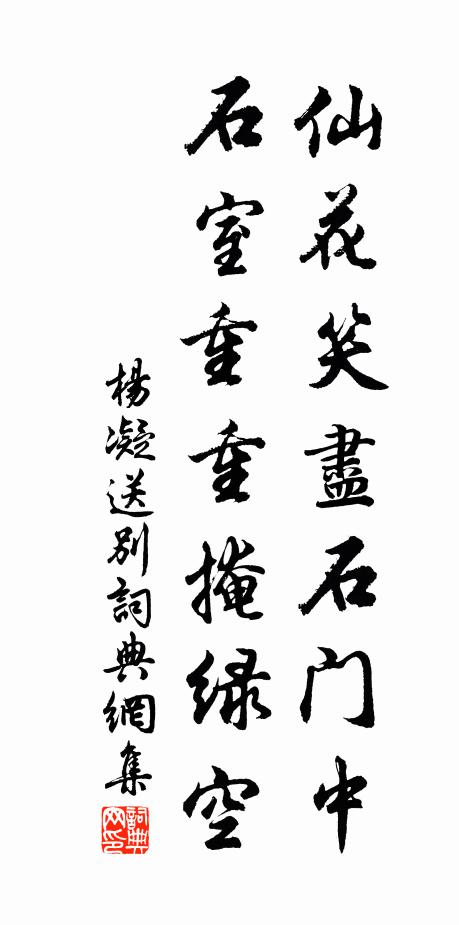 仙花笑盡石门中
石室重重掩緑空
楊凝送别詞典網集
詞典
网印